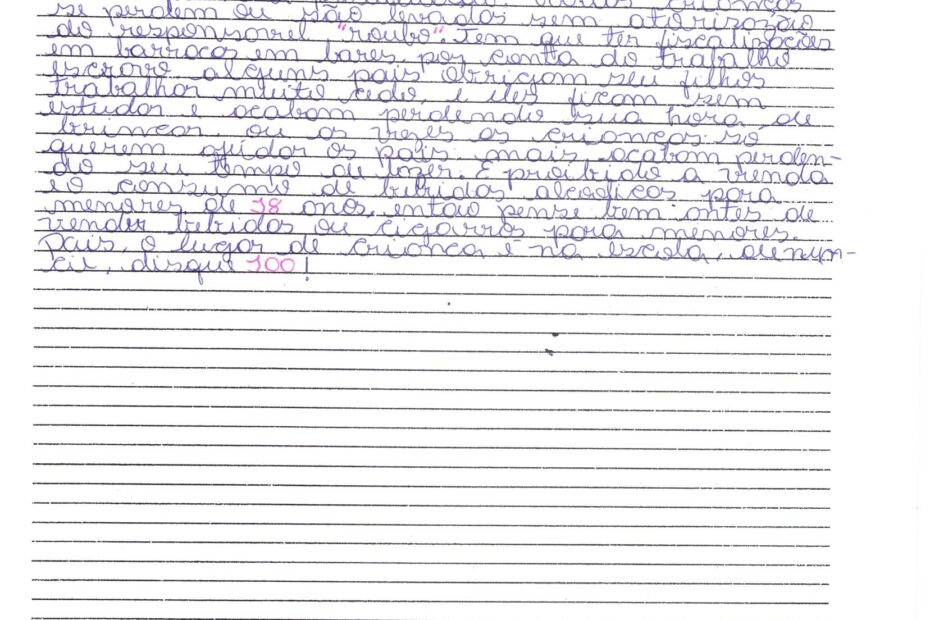 crianças
se perdem ou são levados sem atorização
do responsavel "roubo". Tem que ter fiscalizações
em barracos em bares, por conta do trabalho
escravo alguns pais obrigam seu filhos
trabalhar muito cedo, e eles ficam sem
estudar e acabam perdendo sua hora de
brincar, ou as vezes as crianças só
querem ajudar os pais mais, acabam perden-
do seu tempo de lazer. É proibido a venda
e o consumo de bebidas alcoolicas para
menores de 18 anos, então pense bem antes de
vender bebidas ou cigarros para menores.
Pais, o lugar de criança é na escola, denun-
cie, disque 100!